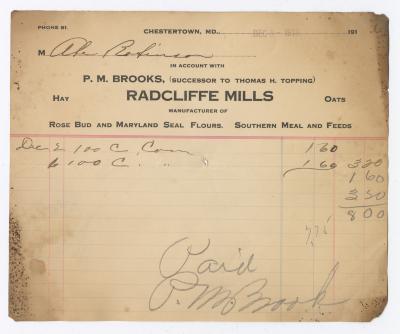 PHONE 91.
CHESTERTOWN, MD., DEC 191
M Abe Robinson
IN ACCOUNT WITH
P. M. BROOKS, (SUCCESSOR TO THOMAS H. TOPPING)
HAY RADCLIFFE MILLS OATS
MANUFACTURER OF
ROSE BUD AND MARYLAND SEAL FLOURS. SOUTHERN MEAL AND FEEDS
Dec 2 100 C. Corn 1.60
6 100 C. " 1 60 3 20
1 60
8 00
Paid
P. M. Brook